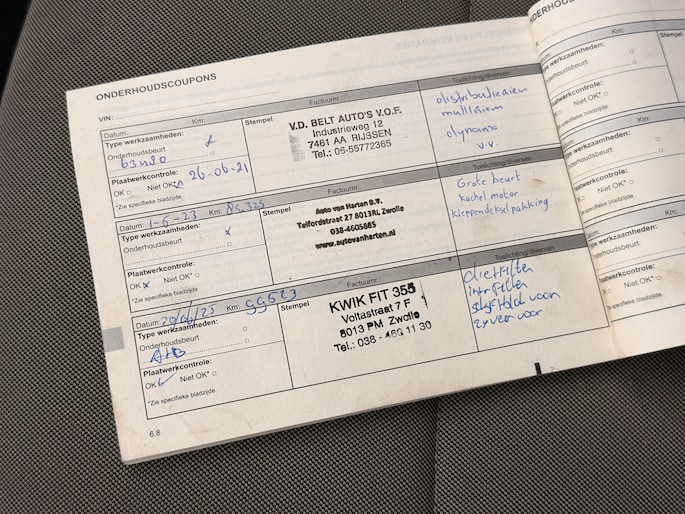 ONDERHOUDSCOUPONS
VIN:
Datum: Km: Factuurnr.: Toelichting/diversen
Type werkzaamheden:
Onderhoudsbeurt
63480
Plaatwerkcontrole:
OK Niet OK* 26-06-21
*Zie specifieke bladzijde
Stempel
V.D. BELT AUTO'S V.O.F.
Industrieweg 12
7461 AA RIJSSEN
Tel.: 06-55772365
distributieriem
multiriem
dynamo
v.v.
Datum: 1-6-23 Km: 85.325 Factuurnr.: Toelichting/diversen
Type werkzaamheden:
Onderhoudsbeurt x
Plaatwerkcontrole:
OK x Niet OK*
*Zie specifieke bladzijde
Stempel
Auto van Harten B.V.
Telfordstraat 27 8013RL Zwolle
038-4605885
www.autovanharten.nl
Grote beurt
kachel motor
kleppendekselpakking
Datum: Km: 99523 Factuurnr.: Toelichting/diversen
Type werkzaamheden:
Onderhoudsbeurt
Plaatwerkcontrole:
OK Niet OK*
*Zie specifieke bladzijde
Stempel
KWIK FIT 355
Voltastraat 7 F
8013 PM Zwolle
Tel.: 038 - 460 11 30
voor
voor
6.8
Datum:
Type werkzaamheden:
Onderhoudsbeurt
Plaatwerkcontrole:
OK Niet OK*
*Zie specifieke bladzijde
Stempel
Datum:
Type werkzaamheden:
Onderhoudsbeurt
Plaatwerkcontrole:
OK Niet OK*
*Zie specifieke bladzijde
Type werkzaamheden:
Onderhoudsbeurt
Plaatwerkcontrole:
OK Niet OK*
*Zie specifieke bladzijde